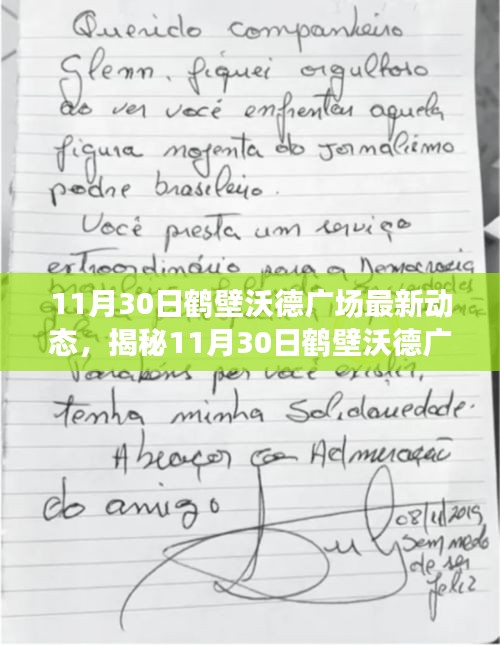 Querido companheiro
Glenn, fiquei orgulhoso
ao ver você enfrentar aquela
figura nojenta do jornalismo
podre brasileiro.
Você presta um serviço
extraordinário para a Democracia
11月30日鹤壁沃德广场最新动
态，揭秘11月30日鹤壁沃德广
Parabéns por você existir,
tenha minha Solidariedade.
Abraços com Admiração
do amigo
Lula
08/11/2019
sem medo
de ser
feliz